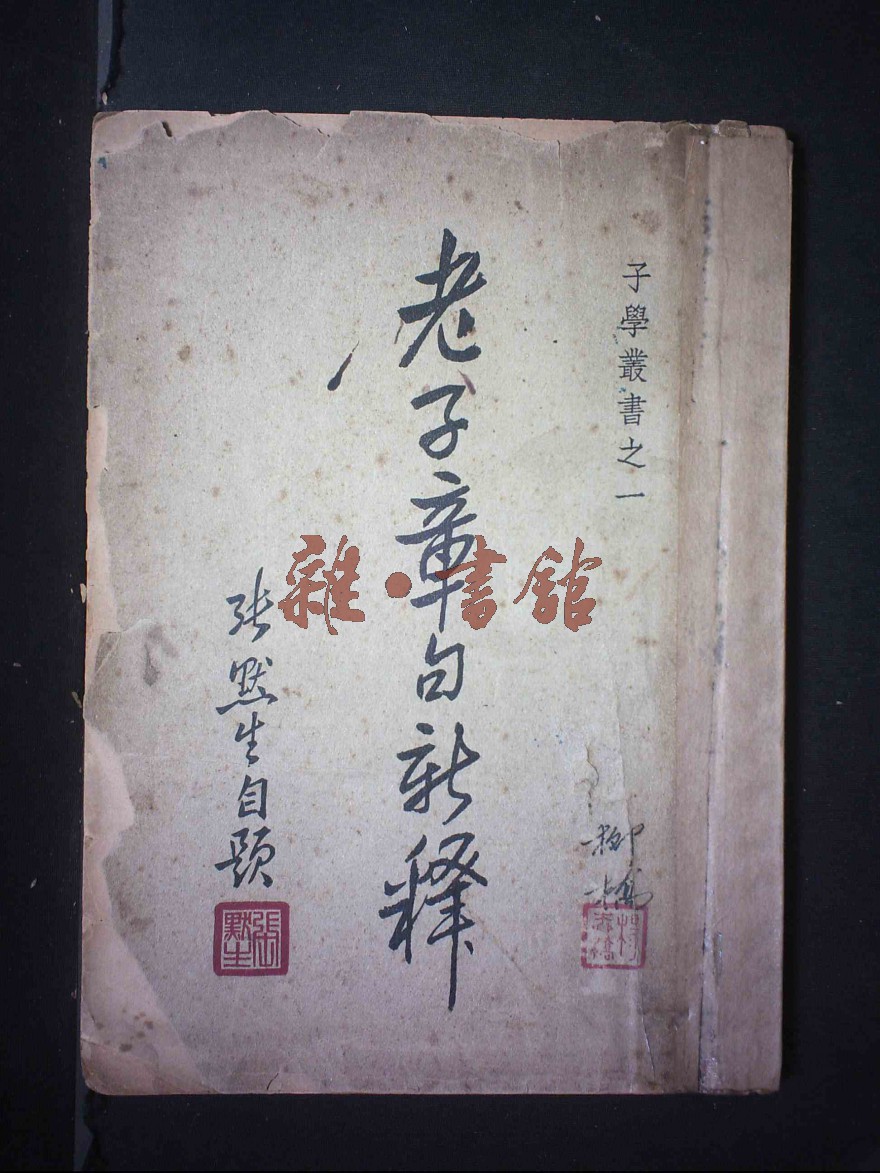 子學叢書之一
老子章句新释
张默生自題
張默生
柳橋
雜·書館